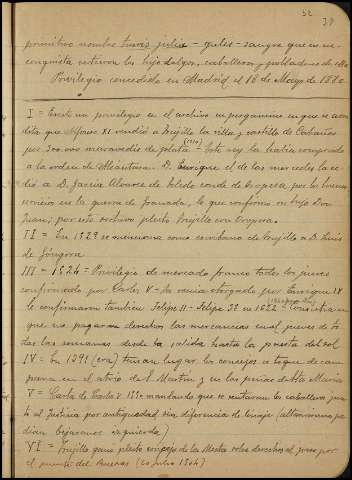 52
39
primitivo nombre turris julia - gules - sangre que en su re-
conquista vertieron los hijodalgos, caballeros y pobladores de ella
Privilegio concedido en Madrid el 18 de Mayo de
I = Existe un privilegio en el archivo en pergamino en que se acre
dita que Alfonso XI vendió a Trujillo la villa y castillo de Cabañas
por 300.000 maravedis de plata - Este rey la había comprado
a la orden de Alcántara. D. Enrique el de las mercedes la ce-
dió a D. Garcia Alvarez de Toledo conde de Oropesa por los buenos
servicios en la guerra de Granada, lo que confirmó su hijo Don
Juan; por esto sostuvo pleito Trujillo con Oropesa.
II = En 1929 se menciona como escribano de Trujillo a D. Luis
de Góngora.
III - 1526 - Privilegio de mercado franco todos los jueves
confirmado por Carlos V - lo había otorgado por Enrique IV
le confirmaron tambien Felipe II - Felipe IV en 1622 - consistía en
que no pagaran derechos las mercancías en el jueves de to-
das las semanas desde la salida hasta la puesta del sol
IV = En 1391 (era) tenían lugar los concejos a toque de cam
pana en el atrio de S. Martin y en las peñas de Sta María
V = Carta de Carlos III mandando que se sentaran los caballeros jun-
to al Justicia por antigüedad sin diferencia de linaje (altamiranos
derecha)
VI = Trujillo ganó pleito concejo de la Mesta sobre derechos al paso por
el puente del Almonte (20 julio